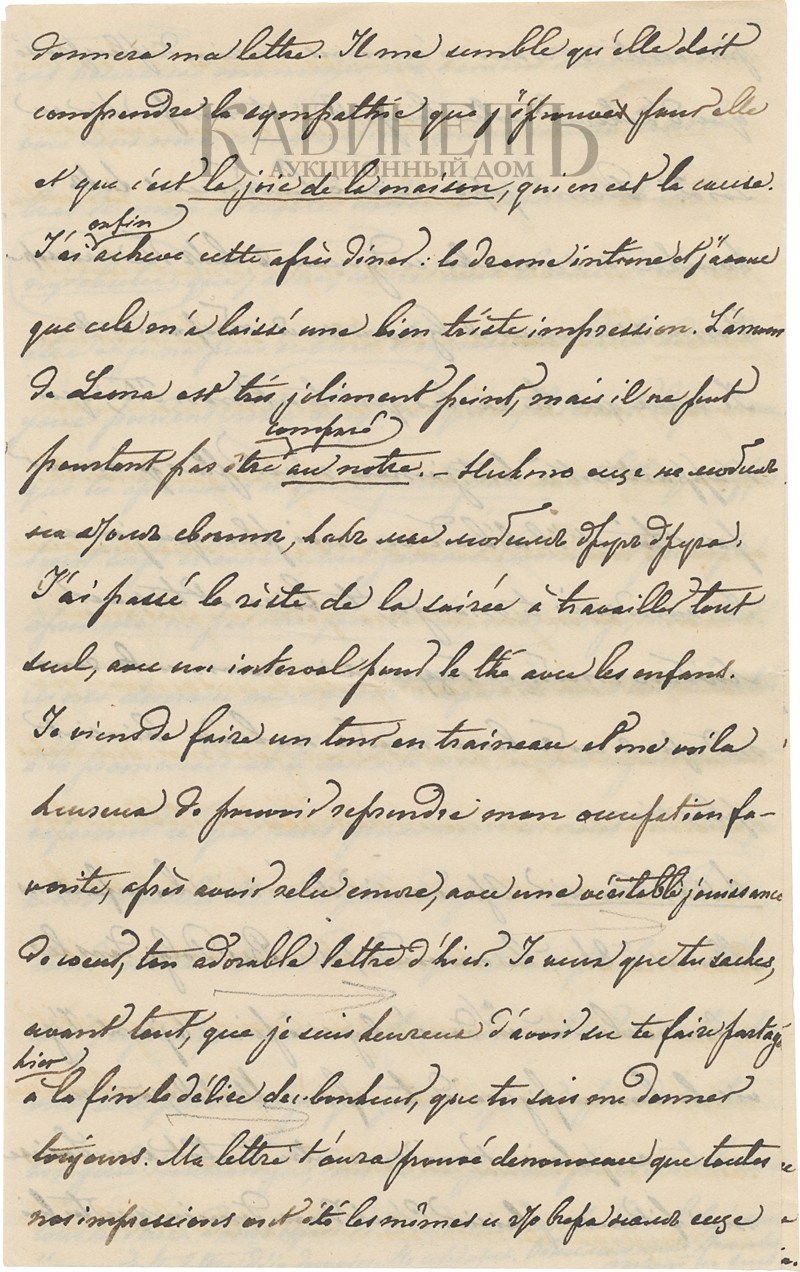 donnera ma lettre. Il me semble qu'elle doit
comprendre la sympathie que j'éprouve pour elle
КАБИНЕТЪ
АУКЦИОННЫЙ ДОМ
et que c'est la joie de la maison, qui en est la cause.
enfin
J'ai achevé cette après diner: le drame intime et j'avoue
que cela m'a laissé une bien triste impression. L'amour
de est très joliment peint, mais il ne peut
comparé
pourtant pas être au notre. – Никто еще не любил
на этом свете, какъ мы любимъ другъ друга.
J'ai passé le reste de la soirée à travailler tout
seul, avec un interval pour le thé avec les enfans.
Je viens de faire un tour en traineau et me voila
heureux de pouvoir reprendre mon occupation fa-
vorite, après avoir relu encore, avec une véritable jouissance
de coeur, ton adorable lettre d'hier. Je veux que tu saches,
avant tout, que je suis heureux d'avoir su te faire partag
hier
à la fin le délice du bonheur, que tu sais me donner
toujours. Ma lettre t'aura prouvé de nouveau que toutes
nos impressions ont été les mêmes и что вчера еще